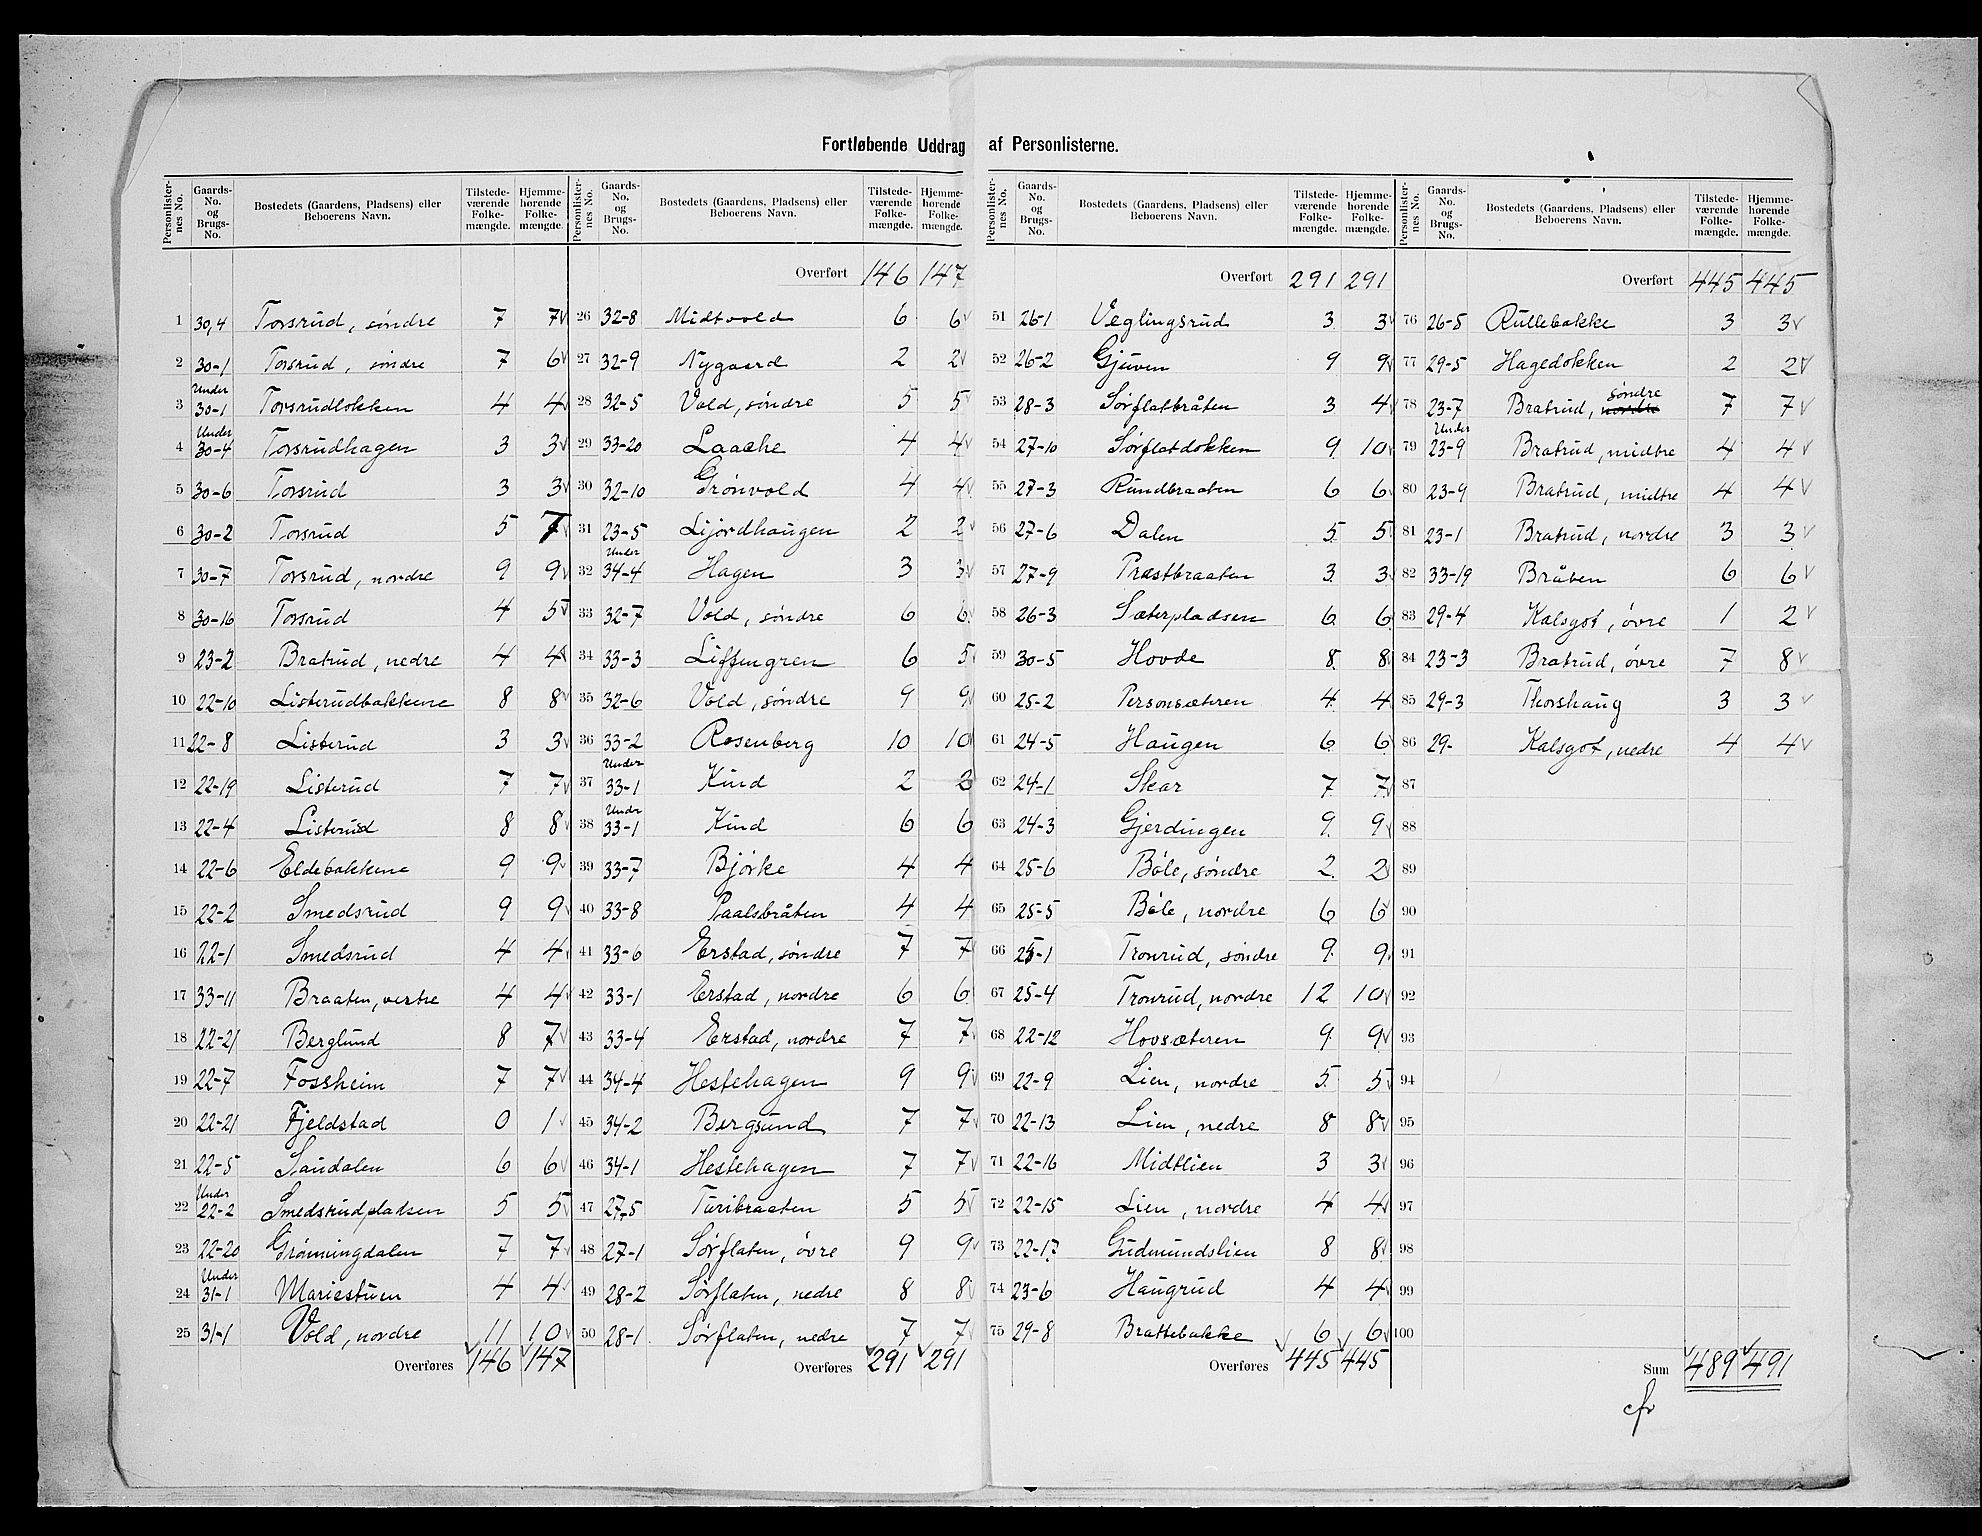 Fortløbende Uddrag af Personlisterne.
Personlisternes No. Gaards-No. og Brugs-No. Bostedets (Gaardens, Pladsens) eller Beboerens Navn. Tilstedeværende Folkemængde. Hjemmehørende Folkemængde.
1 30,4 Torsrud, søndre 7 7
2 30-1 Torsrud, søndre 7 6
3 Under 30-1 Torsrudlokken 4 4
4 Under 30-4 Torsrudhagen 3 3
5 30-6 Torsrud 3 3
6 30-2 Torsrud 5 7
7 30-7 Torsrud, nordre 9 9
8 30-16 Torsrud 4 5
9 23-2 Bratrud, nedre 4 4
10 22-10 Listerudbakkene 8 8
11 22-8 Listerud 3 3
12 22-19 Listerud 7 7
13 22-4 Listerud 8 8
14 22-6 Eldebakkene 9 9
15 22-2 Smedsrud 9 9
16 22-1 Smedsrud 4 4
17 33-11 Braaten, vestre 4 4
18 22-21 Berglund 8 7
19 22-7 Fossheim 7 7
20 22-21 Fjeldstad 0 1
21 22-5 Sandalen 6 6
22 Under 22-2 Smedsrudpladsen 5 5
23 22-20 Grønningdalen 7 7
24 Under 31-1 Mariestuen 4 4
25 31-1 Vold, nordre 11 10
Overføres 146 147
Personlisternes No. Gaards-No. og Brugs-No. Bostedets (Gaardens, Pladsens) eller Beboerens Navn. Tilstedeværende Folkemængde. Hjemmehørende Folkemængde.
Overført 146 147
26 32-8 Midtvold 6 6
27 32-9 Nygaard 2 2
28 32-5 Vold, søndre 5 5
29 33-20 Laache 4 4
30 32-10 Grønvold 4 4
31 23-5 Lijordhaugen 2 2
32 Under 34-4 Hagen 3 3
33 32-7 Vold, søndre 6 6
34 33-3 Liffengren 6 5
35 32-6 Vold, søndre 9 9
36 33-2 Rosenberg 10 10
37 Under 33-1 Kind 2 3
38 Under 33-1 Kind 6 6
39 33-7 Bjørke 4 4
40 33-8 Paalsbråten 4 4
41 33-6 Erstad, søndre 7 7
42 33-1 Erstad, nordre 6 6
43 33-4 Erstad, nordre 7 7
44 34-4 Hestehagen 9 9
45 34-2 Bergsund 7 7
46 34-1 Hestehagen 7 7
47 27-5 Turibraaten 5 5
48 27-1 Sørflaten, øvre 9 9
49 28-2 Sørflaten, nedre 8 8
50 28-1 Sørflaten, nedre 7 7
Overføres 291 291
Personlisternes No. Gaards-No. og Brugs-No. Bostedets (Gaardens, Pladsens) eller Beboerens Navn. Tilstedeværende Folkemængde. Hjemmehørende Folkemængde.
Overført 291 291
51 26-1 Veglingsrud 3 3
52 26-2 Gjuven 9 9
53 28-3 Sørflatbråten 3 4
54 27-10 Sørflatdokken 9 10
55 27-3 Rundbraaten 6 6
56 27-6 Dalen 5 5
57 27-9 Præstbraaten 3 3
58 26-3 Sæterpladsen 6 6
59 30-5 Hovde 8 8
60 25-2 Personsæteren 4 4
61 24-5 Haugen 6 6
62 24-1 Skar 7 7
63 24-3 Gjerdingen 9 9
64 25-6 Bøle, søndre 2 2
65 25-5 Bøle, nordre 6 6
66 25-1 Tronrud, søndre 9 9
67 25-4 Tronrud, nordre 12 10
68 22-12 Hovsæteren 9 9
69 22-9 Lien, nordre 5 5
70 22-13 Lien, nedre 8 8
71 22-16 Midtlien 3 3
72 22-15 Lien, nordre 4 4
73 22-17 Gudmundslien 8 8
74 23-6 Haugrud 4 4
75 29-8 Brattebakke 6 6
Overføres 445 445
Personlisternes No. Gaards-No. og Brugs-No. Bostedets (Gaardens, Pladsens) eller Beboerens Navn. Tilstedeværende Folkemængde. Hjemmehørende Folkemængde.
Overført 445 445
76 26-5 Rullebakke 3 3
77 29-5 Hagedokken 2 2
78 23-7 Bratrud, nordre søndre 7 7
79 Under 23-9 Bratrud, midtre 4 4
80 23-9 Bratrud, midtre 4 4
81 23-1 Bratrud, nordre 3 3
82 33-19 Bråten 6 6
83 29-4 Kalsgot, øvre 1 2
84 23-3 Bratrud, øvre 7 8
85 29-3 Thorshaug 3 3
86 29- Kalsgot, nedre 4 4
87
88
89
90
91
92
93
94
95
96
97
98
99
100
Sum 489 491